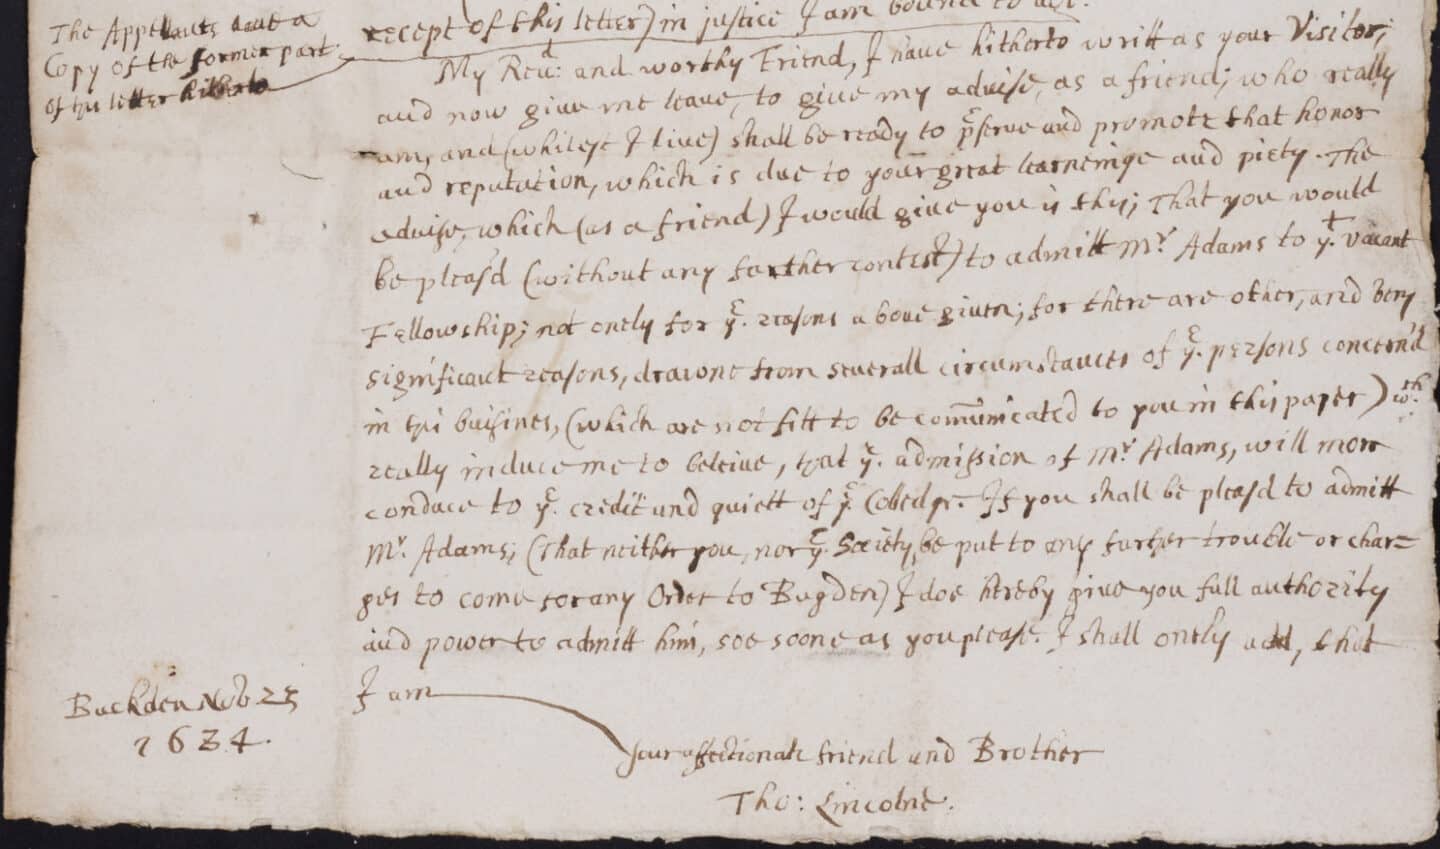 The Appellants have a
Copy of the former part
of this letter hitherto
recept of this letter) in justice I am bound to
My Revd: and worthy Friend, I have hitherto writt as your Visitor;
and now give me leave, to give my advise, as a friend; who really
am, and (whilest I live) shall be ready to p̄serve and promote that honor
and reputation, which is due to your great learneinge and piety. The
advise, which (as a friend) I would give you is this; That you would
be pleas'd (without any farther contest) to admitt Mr Adams to yt. vacant
Fellowship; not onely for ye. reasons above given; for there are other, and very
significant reasons, drawne from severall circumstances of ye. persons concern'd
in this buisines, (which are not fitt to be com̄unicated to you in this paper) wch.
really induce me to beleive, that ye. admission of Mr. Adams, will more
conduce to ye. credit and quiett of ye. Colledge. If you shall be pleas'd to admitt
Mr. Adams; (That neither you, nor ye. Society, be put to any further trouble or char=
ges to come for any Order to Bugden) I doe hereby give you full authority
and power to admitt him, soe soone as you please. I shall onely add, that
I am
Buckden Nov. 25
1684.
Your affectionate friend and Brother
Tho: Lincolne.